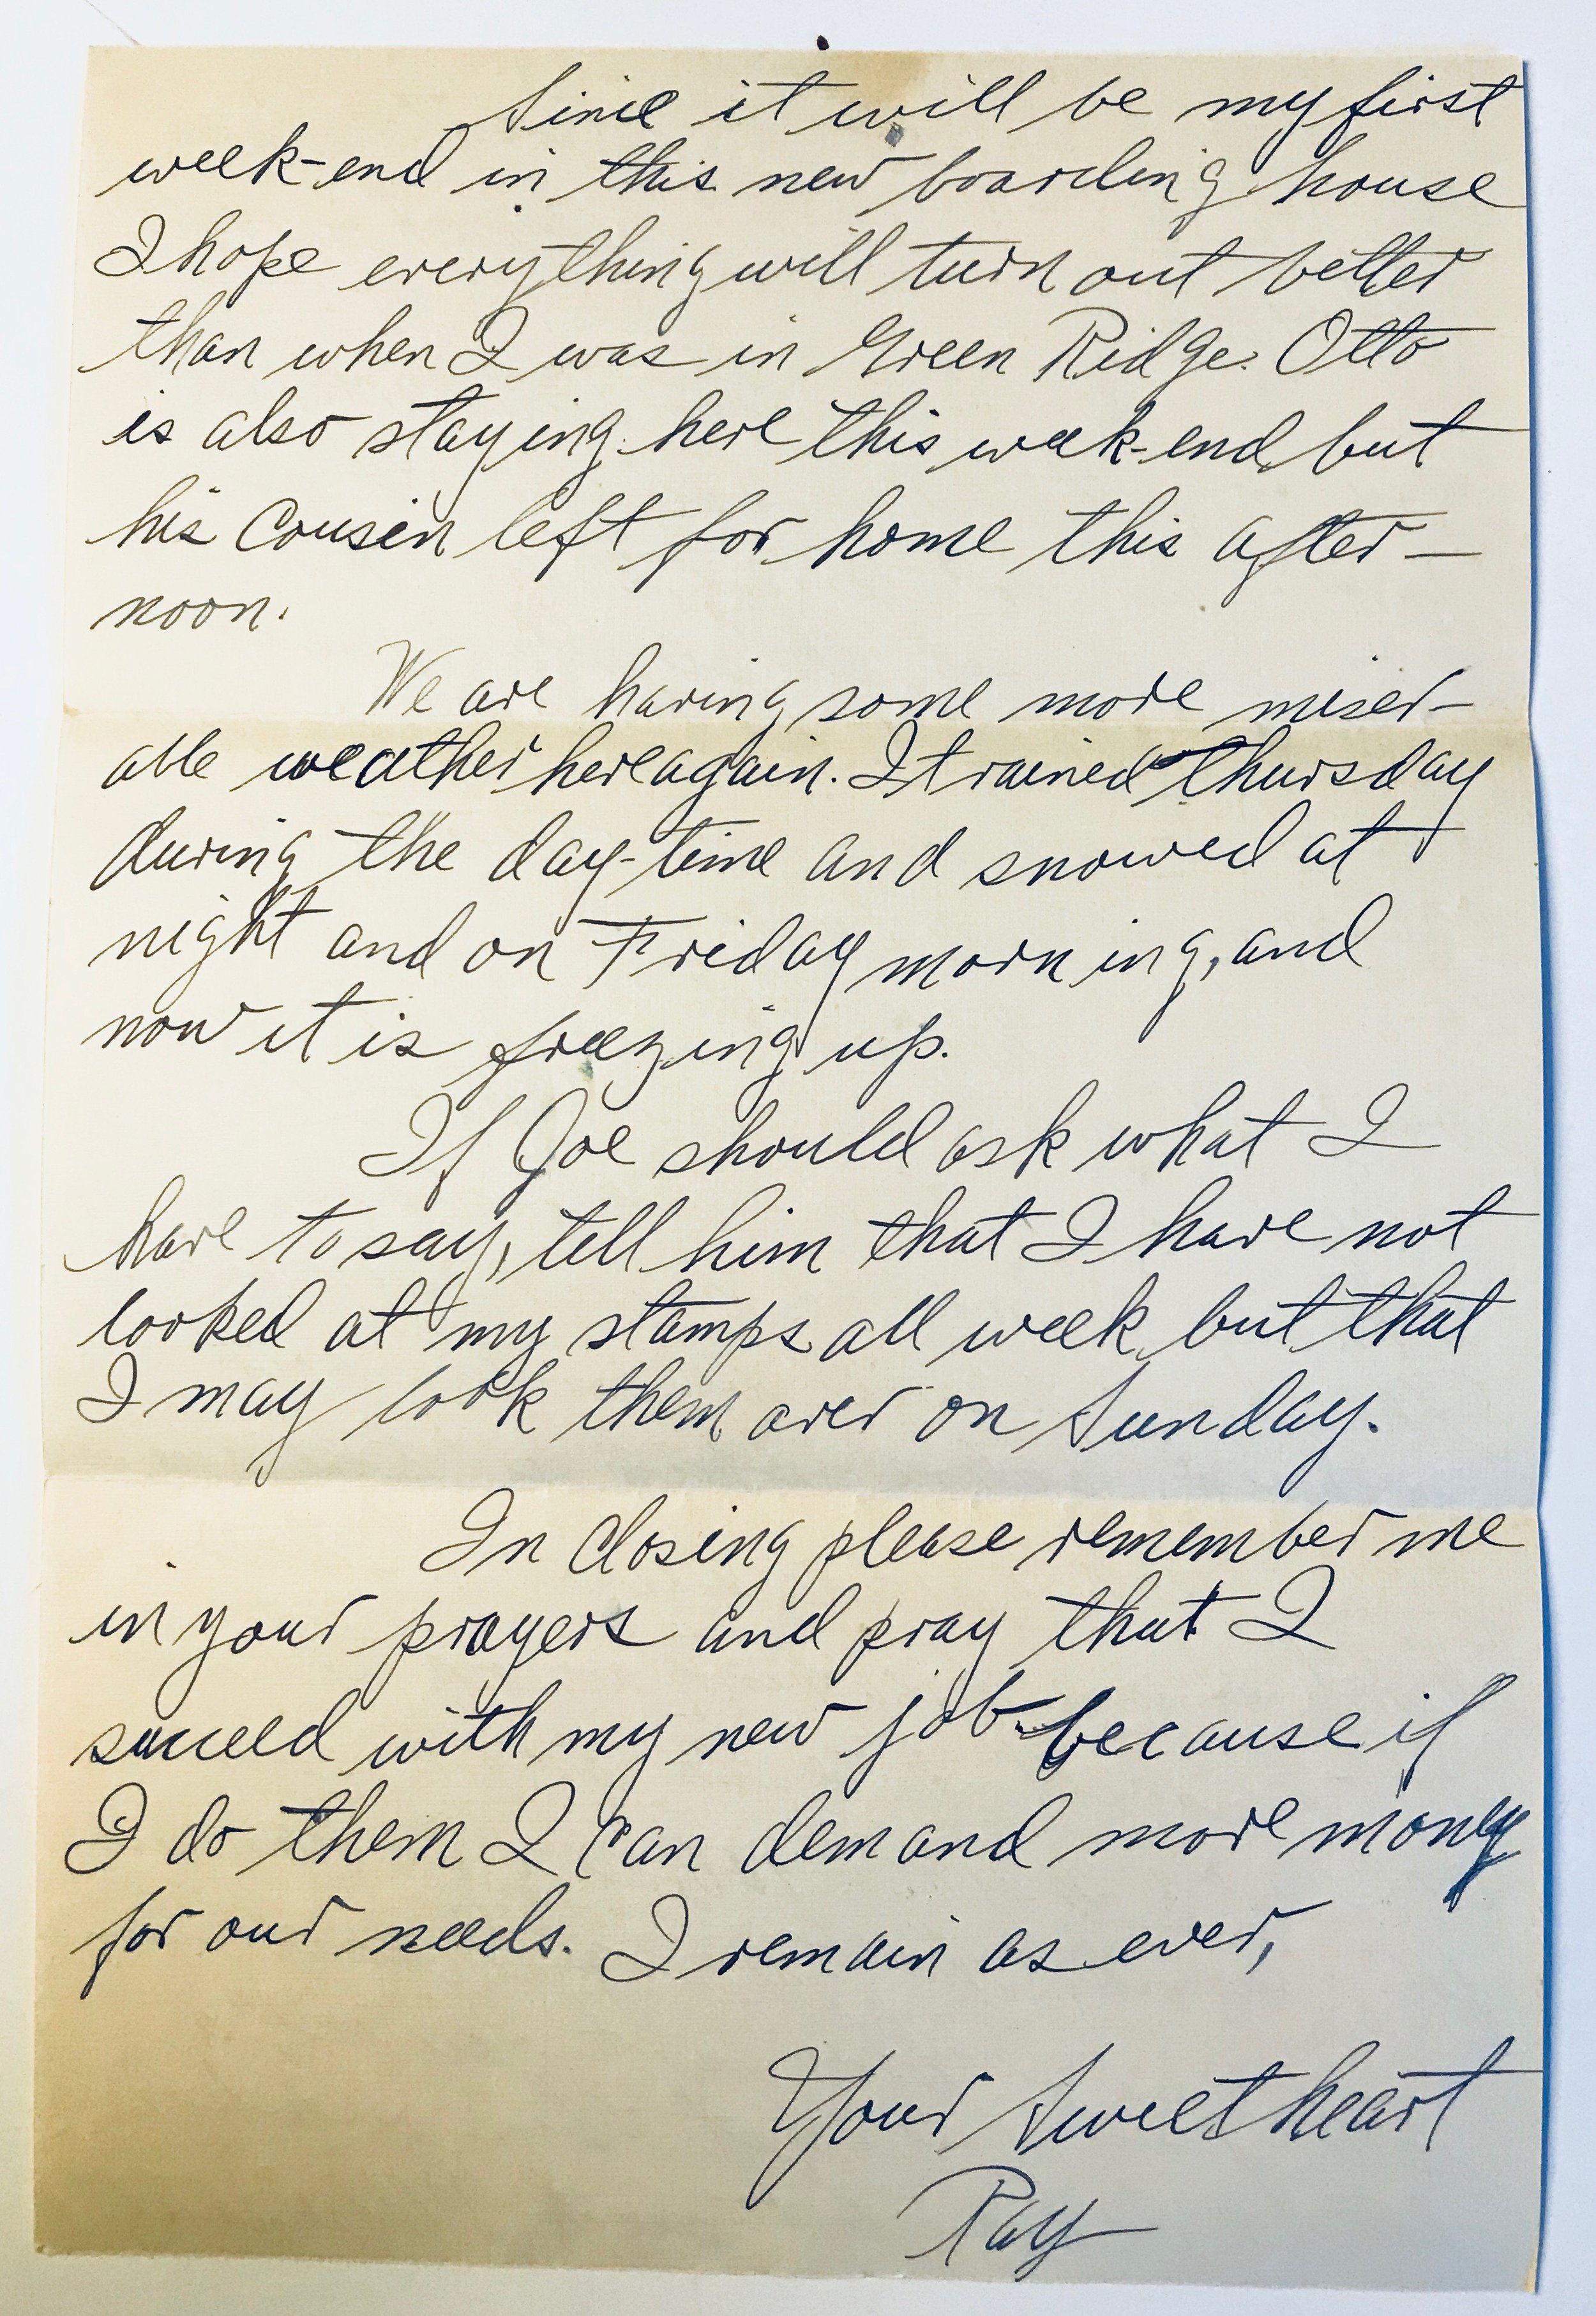 Since it will be my first
week-end in this new boarding house
I hope everything will turn out better
than when I was in Green Ridge. Otto
is also staying here this week-end but
his Cousin left for home this after-
noon.
We are having some more miser-
able weather here again. It rained thursday
during the day-time and snowed at
night and on Friday morning, and
now it is freezing up.
If Joe should ask what I
have to say, tell him that I have not
looked at my stamps all week but that
I may look them over on Sunday.
In Closing please remember me
in your prayers and pray that I
succeed with my new job because if
I do them I can demand more money
for our needs. I remain as ever,
Your Sweetheart
Ray